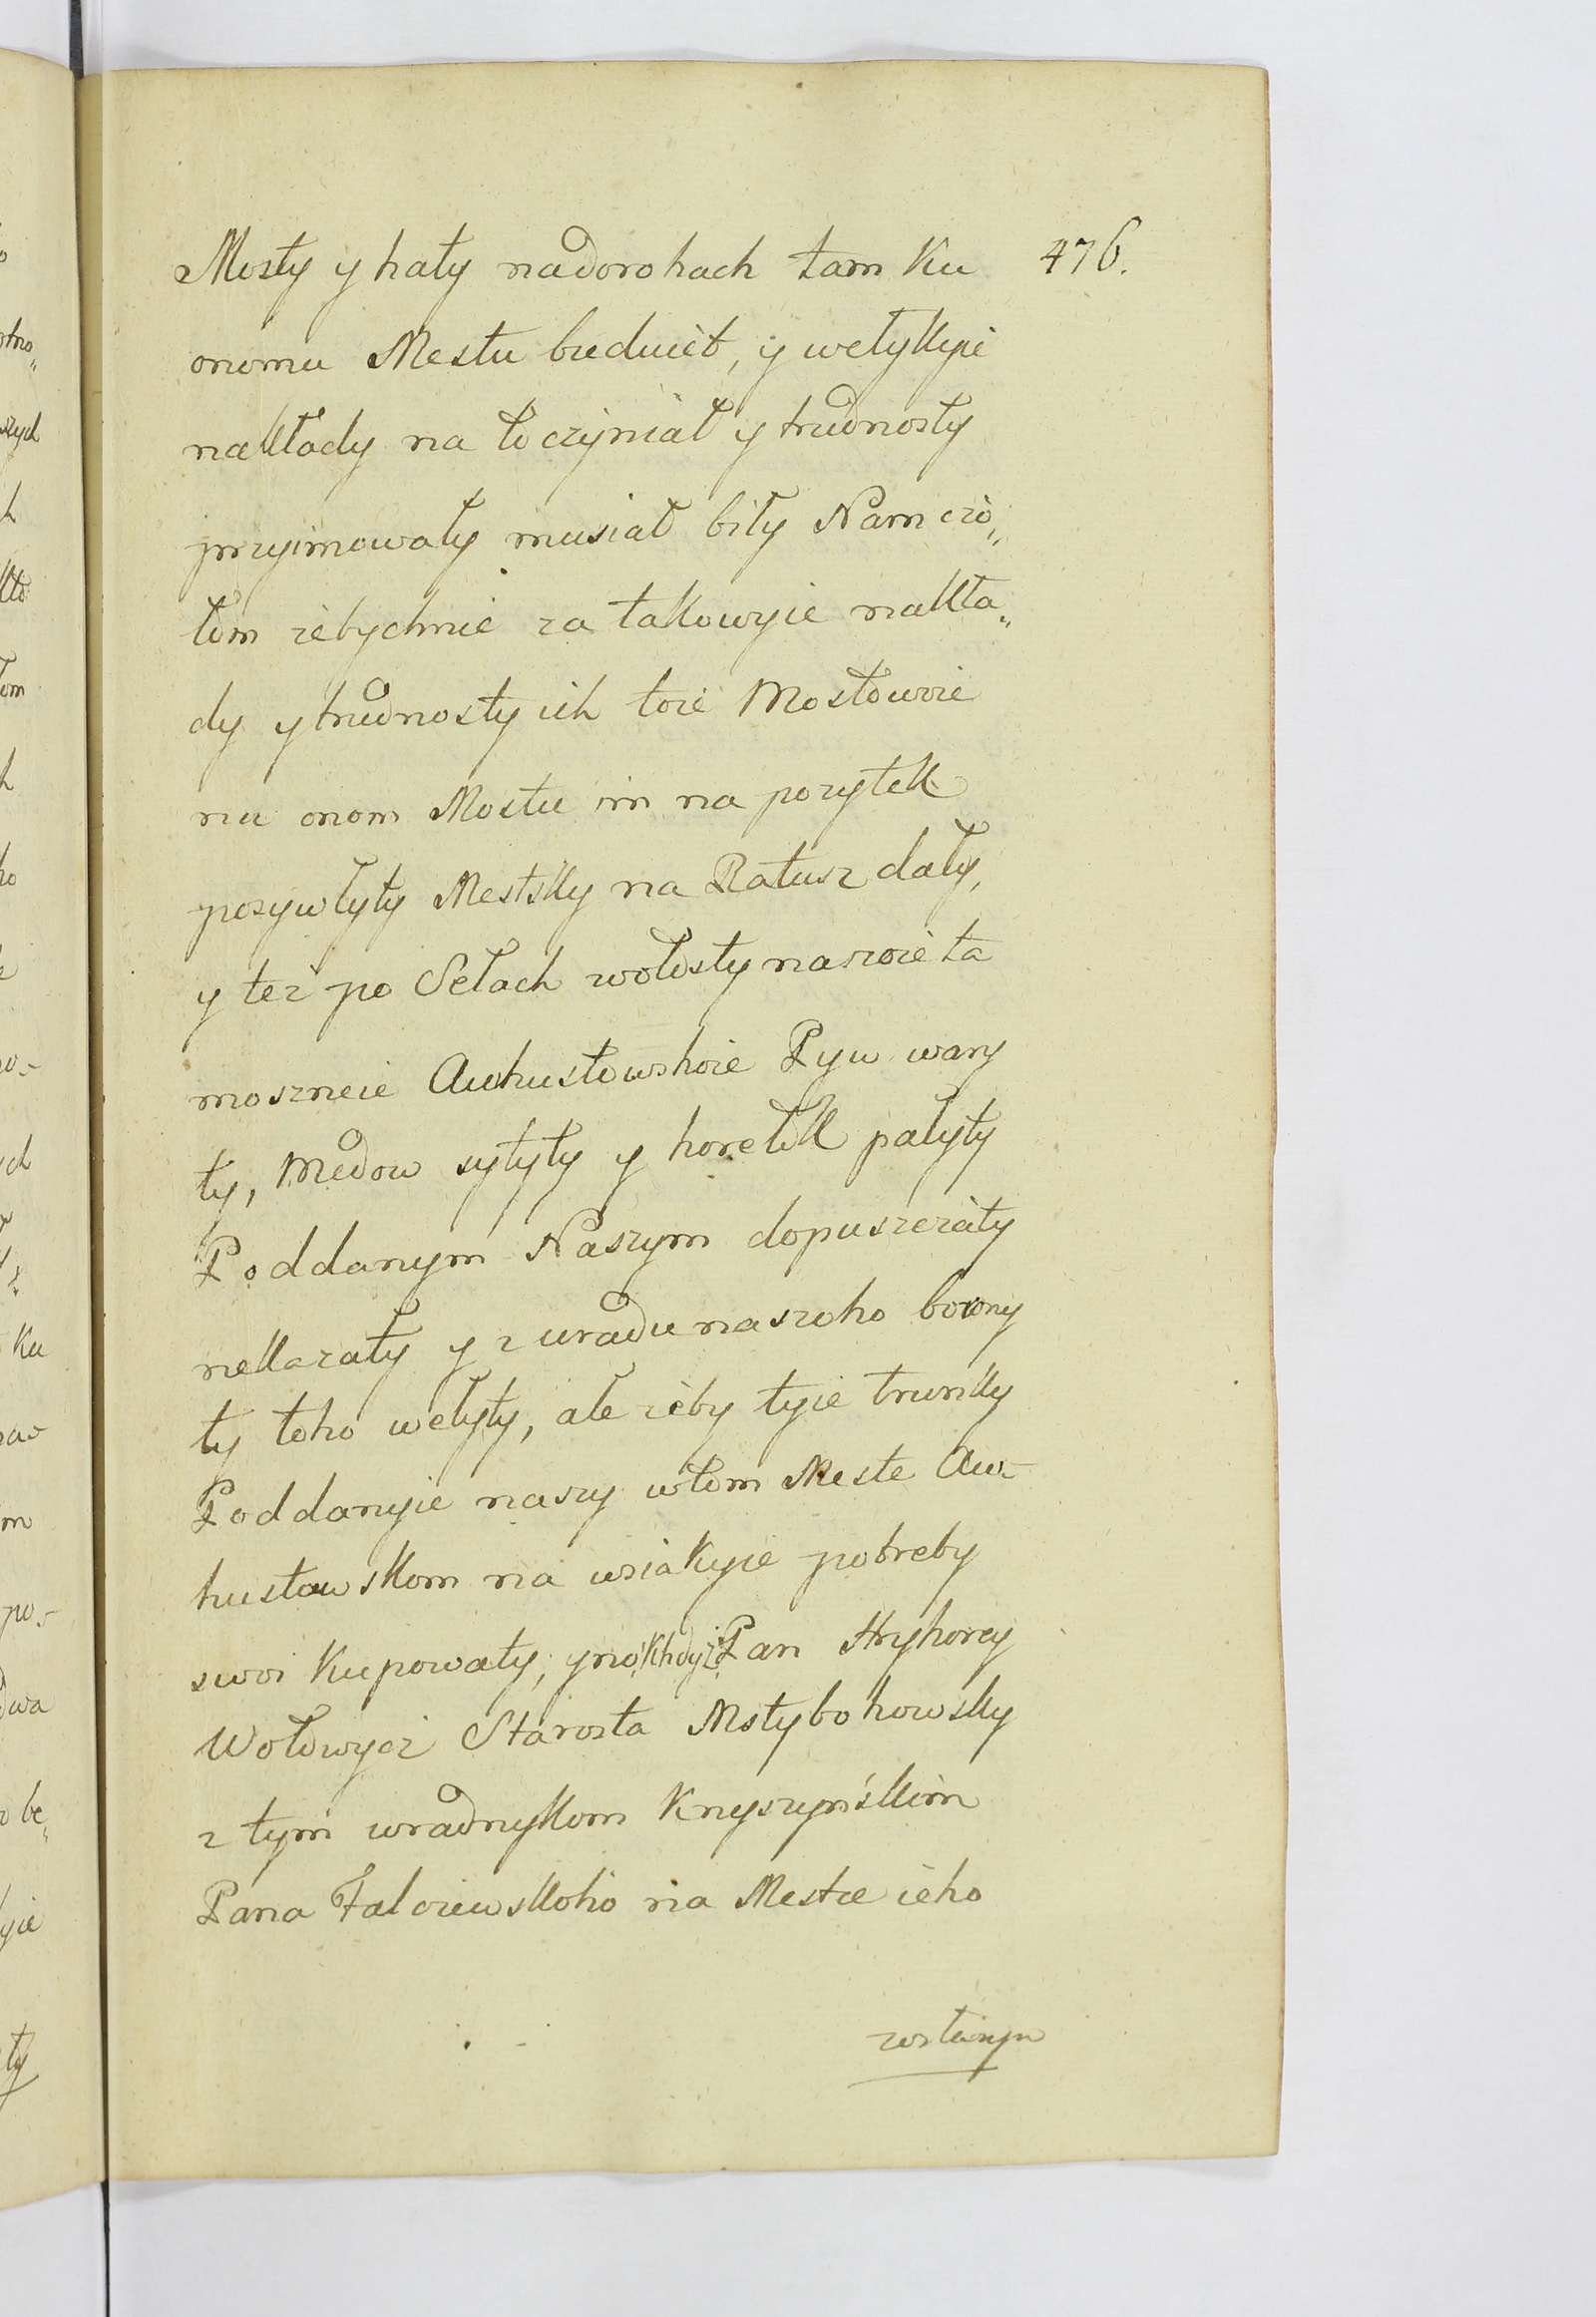 Mosty y haty nadorohach tam Ku 476.
onomu Mestu buduiet, y welykyie
nakłady na to czyniat y trudnosty
pryimowaty musiat bity Nam czo„
łom żebychmie za takowyie nakła„
dy y trudnosty ich toie Mostowoie
na onom Mostu im na pożytek
pożywłyty Mestsky na Ratusz daty,
y też po Sełach wołosty naszoie ta
moszneie Awhustowskoie Pyw wary
ty, Medow sytyty y horełok pałyty
Poddanym Naszym dopuszczaty
nekazaty y z uradu naszoho borony
ty toho wełyty, ale żeby tyie trunky
Poddanyie naszy wtom Meste Aw-
hustowskom na wsiakyie potreby
swoi Kupowaty, yno Khdyż Pan Hryhorey
Wołowycz Starosta Mstybohowsky
z tym wradnykom Knyszyńskim
Pana Falczewskoho na Mestce ieho